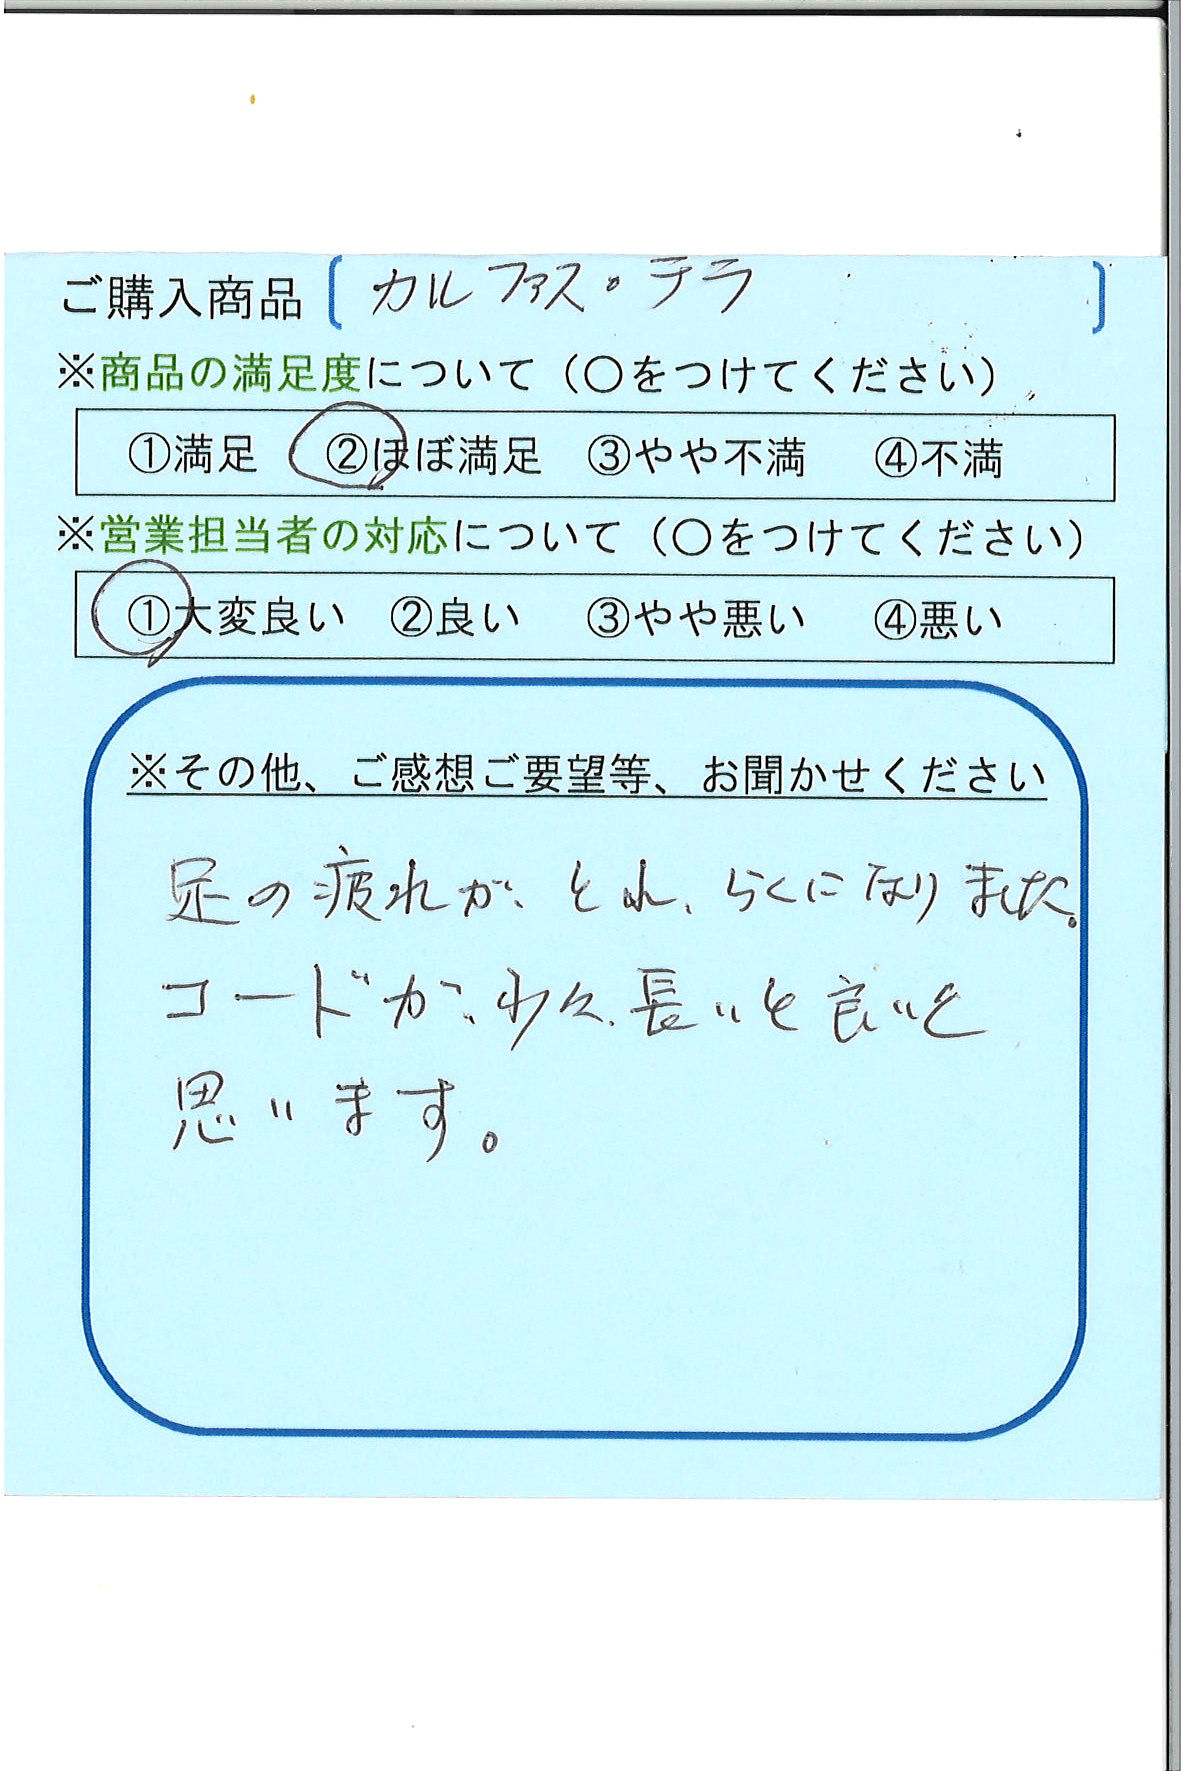 ご購入商品〔カルファス・テラ〕
※商品の満足度について（○をつけてください）
①満足 ②ほぼ満足 ③やや不満 ④不満
※営業担当者の対応について（○をつけてください）
①大変良い ②良い ③やや悪い ④悪い
※その他、ご感想ご要望等、お聞かせください
足の疲れが、とれ、らくになりました。
コードが、少々、長いと良いと
思います。